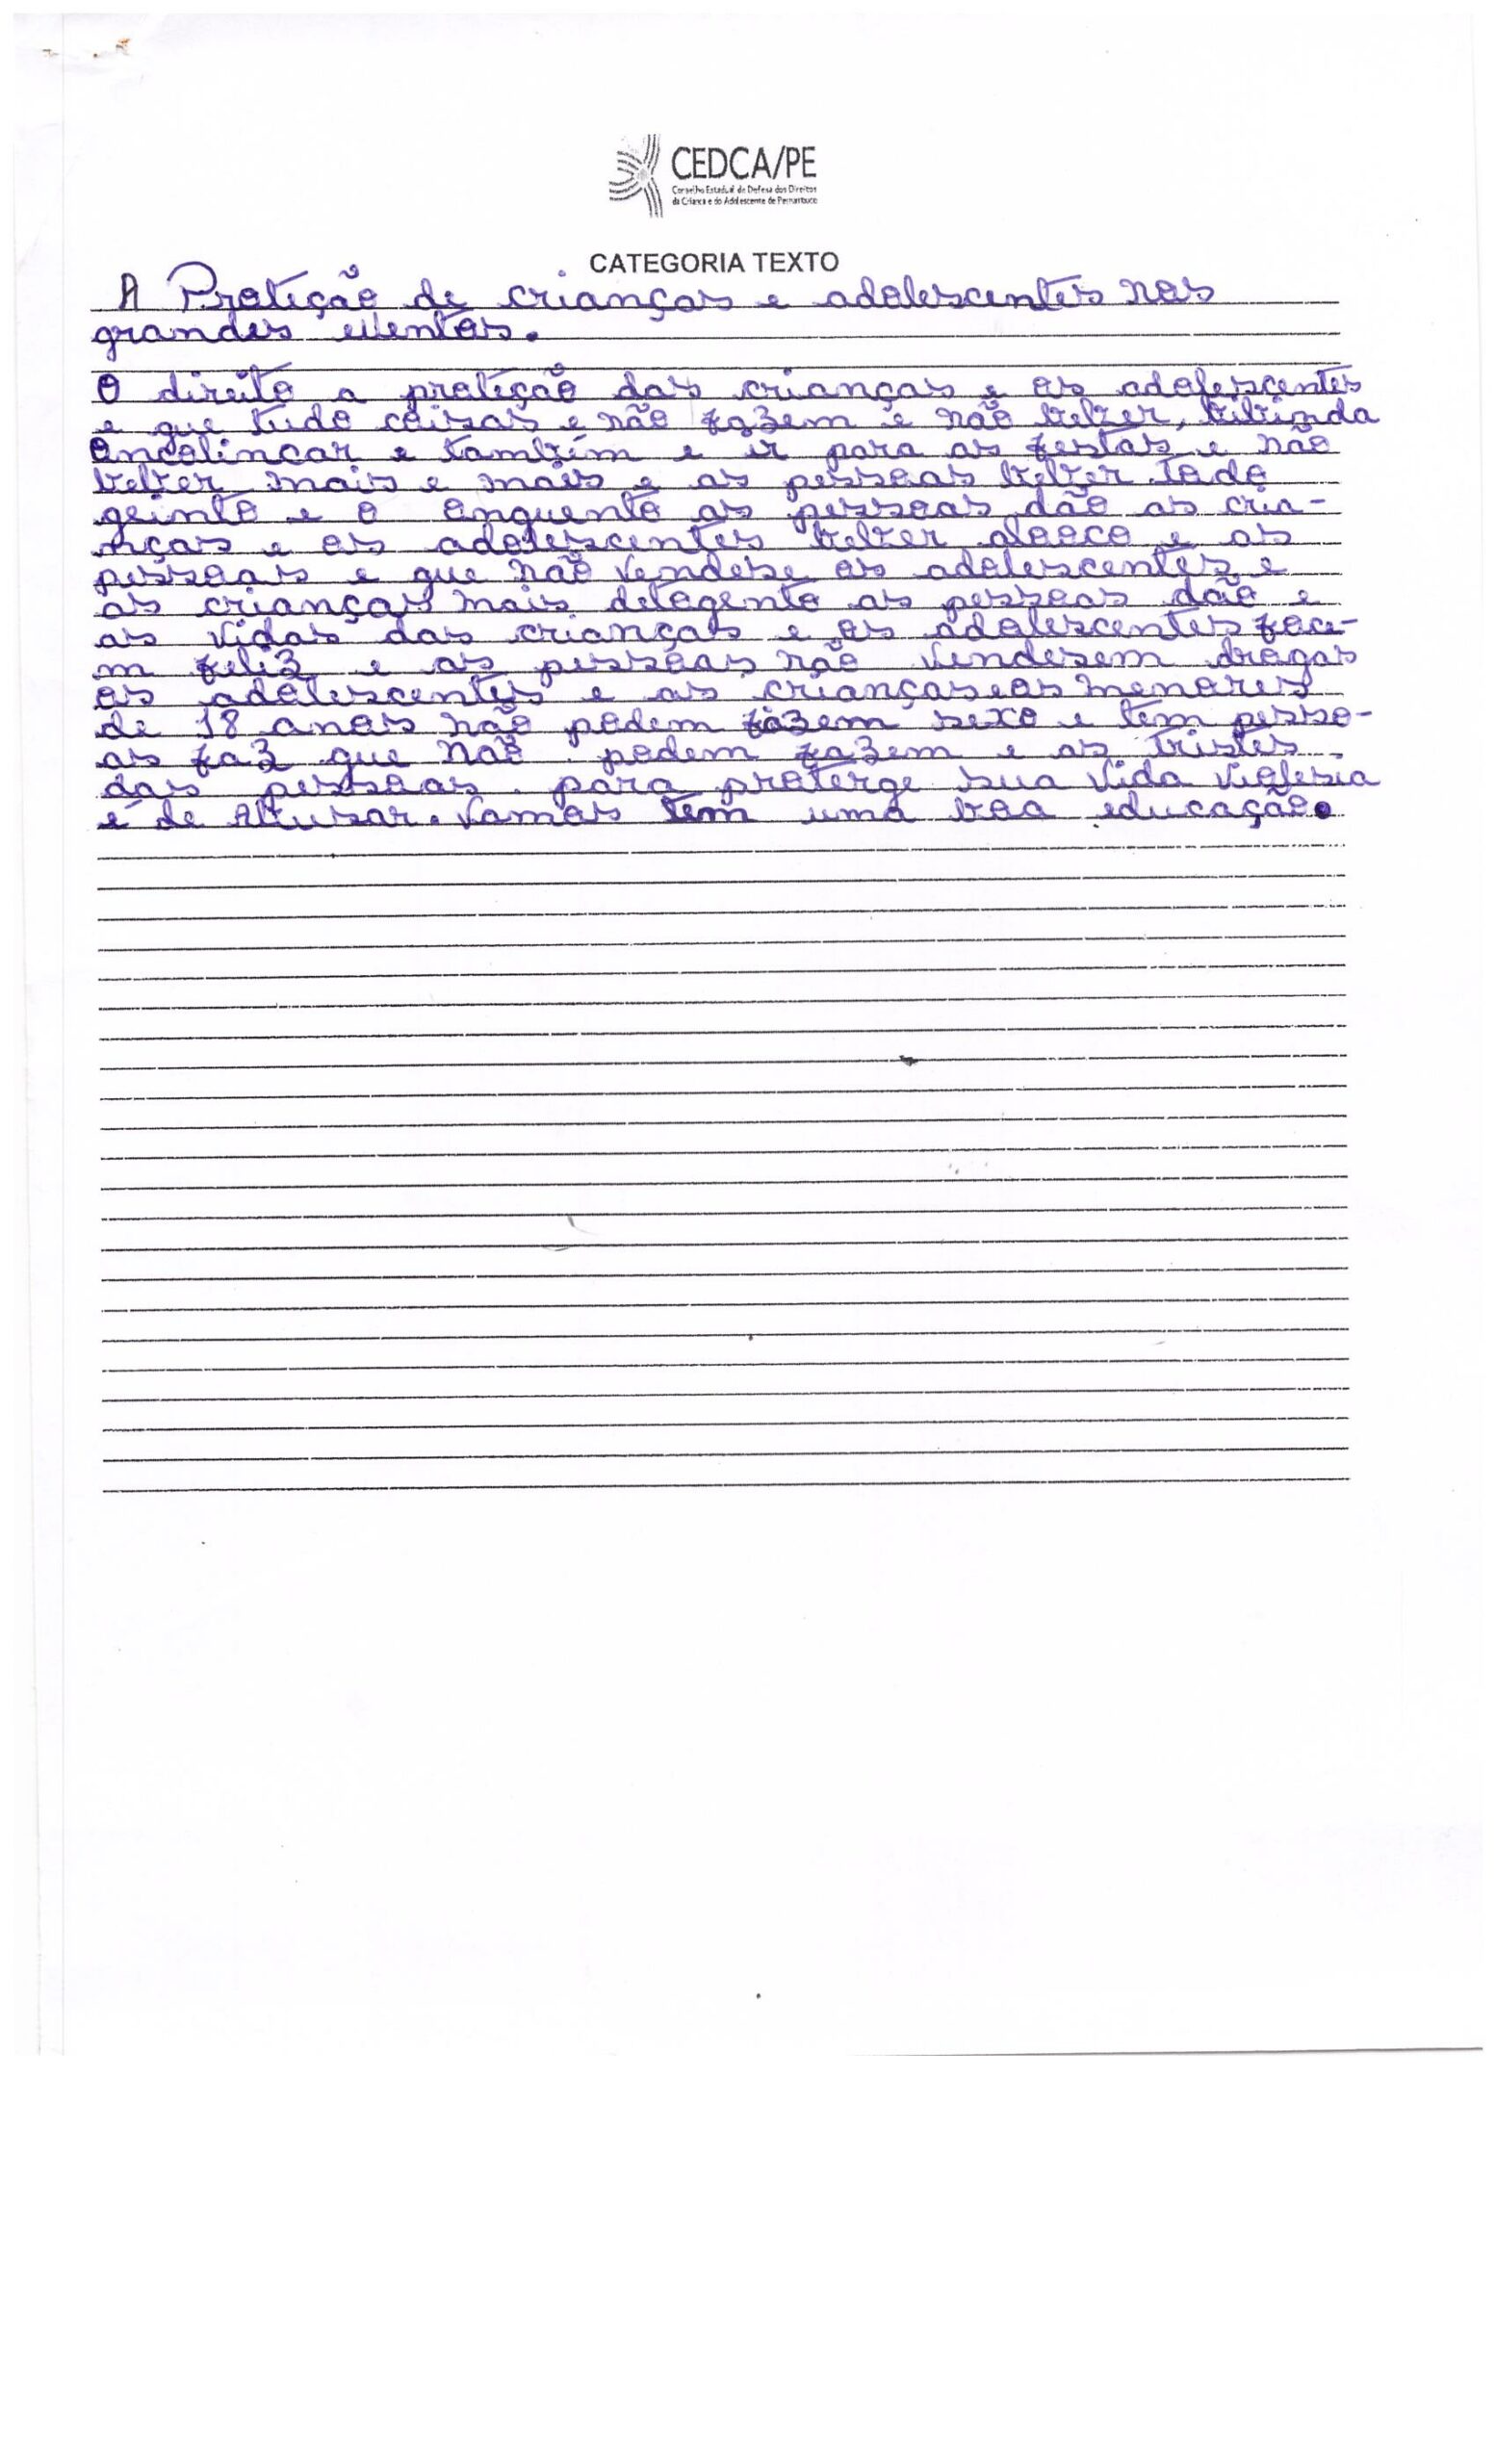 CEDCA/PE
Conselho Estadual de Defesa dos Direitos
da Criança e do Adolescente de Pernambuco
CATEGORIA TEXTO
A Proteção de crianças e adolescentes nos
grandes eventos.
O direito a proteção das crianças e os adolescentes
e que tudo coisas e não fazem e não belber, bibinda
Oncolincar e também e ir para as festas e não
belber mais e mais e as pessoas belber todo
geinto e o enquento as pessoas dão as cria-
nças e os adolescentes belber alooco e as
pessoais e que não vendese os adolescentes e
as crianças mais detogente as pessoas dão e
as vidas das crianças e os adolescentes face-
m feliz e as pessoas não vendesem drogas
os adolescentes e as crianças e os menores
de 18 anos não podem fazem sexo e tem pesso-
as faz que não podem fazem e as tristes
das pessoas para proterge sua vida violesia
e de Abusar. Vamos tem uma boa educação.